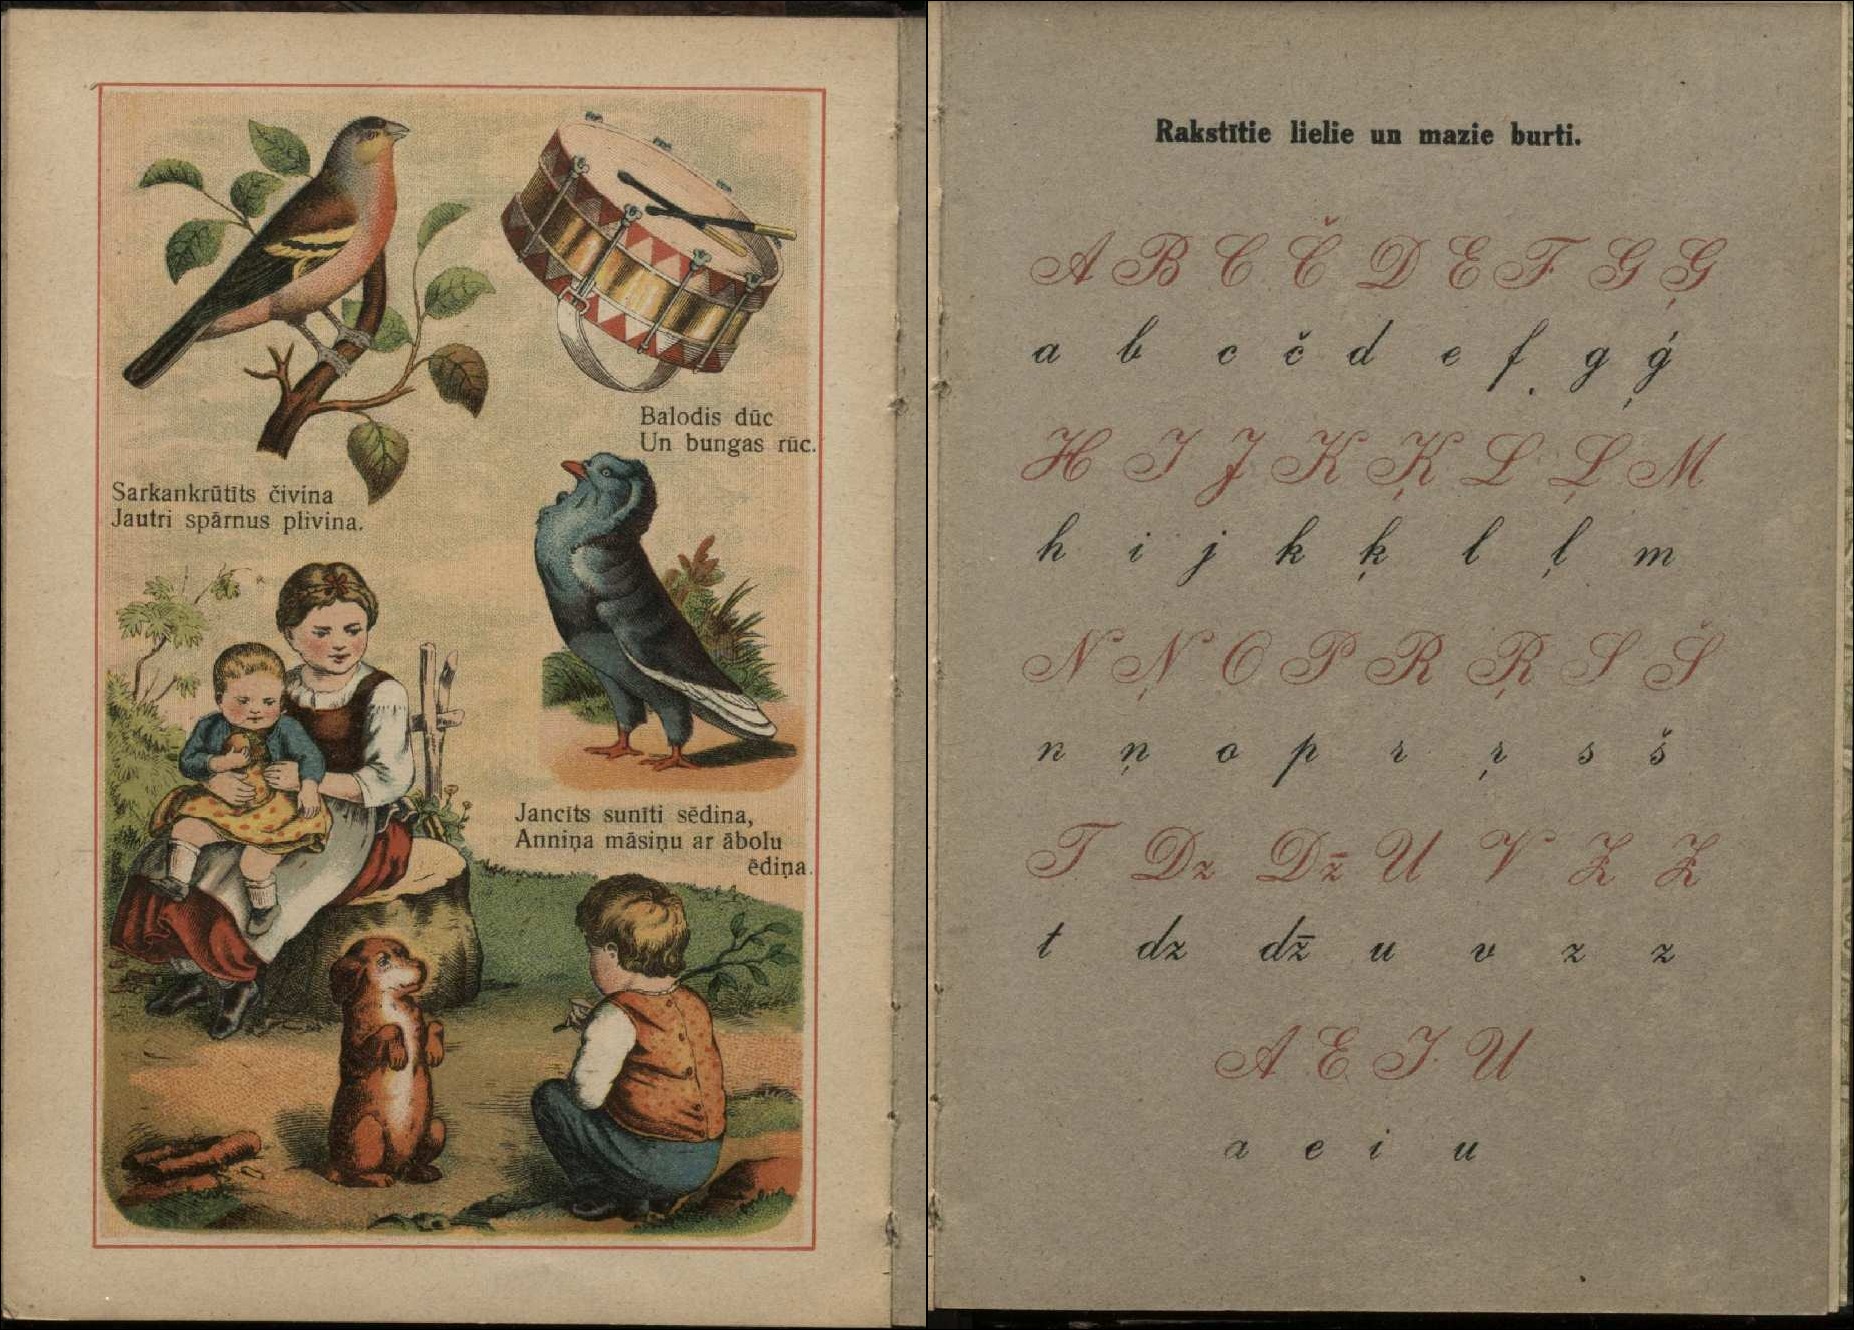 Balodis dūc
Un bungas rūc.
Sarkankrūtīts čivina
Jautri spārnus plivina.
Jancīts sunīti sēdina,
Anniņa māsiņu ar ābolu
ēdiņa.
Rakstītie lielie un mazie burti.
A B C Č D E F G Ģ
a b c č d e f g ģ
H I J K Ķ L Ļ M
h i j k ķ l ļ m
N Ņ O P R Ŗ S Š
n ņ o p r ŗ s š
T Dz Dz̄ U V Z Z
t dz dz̄ u v z z
A E I U
a e i u